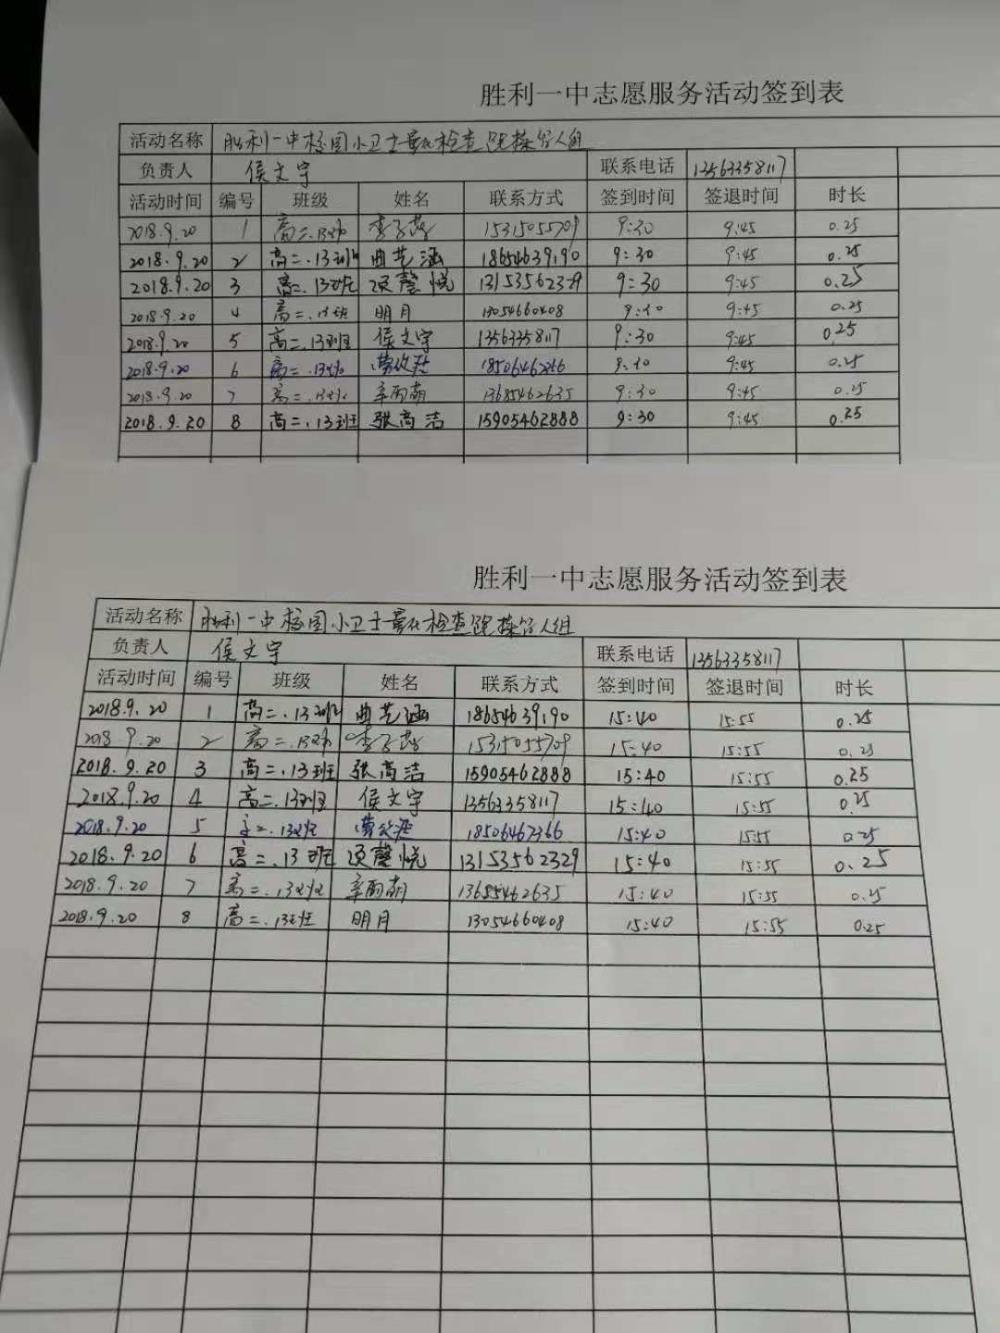 胜利一中志愿服务活动签到表
活动名称 胜利一中校园小卫士
负责人 侯文宇 联系电话 13563358117
活动时间 编号 班级 姓名 联系方式 签到时间 签退时间 时长
2018.9.20 1 高二.13班 15315055709 9:30 9:45 0.25
2018.9.20 2 高二.13班 曲艺涵 18654639190 9:30 9:45 0.25
2018.9.20 3 高二.13班 9:30 9:45 0.25
2018.9.20 4 高二.13班 明月 13054660408 9:30 9:45 0.25
2018.9.20 5 高二.13班 侯文宇 13563358117 9:30 9:45 0.25
2018.9.20 6 高二.13班 9:30 9:45 0.25
2018.9.20 7 高二.13班 辛雨萌 9:30 9:45 0.25
2018.9.20 8 高二.13班 张高洁 15905462888 9:30 9:45 0.25
胜利一中志愿服务活动签到表
活动名称 胜利一中校园小卫士
负责人 侯文宇 联系电话 13563358117
活动时间 编号 班级 姓名 联系方式 签到时间 签退时间 时长
2018.9.20 1 高二.13班 曲艺涵 18654639190 15:40 15:55 0.25
2018.9.20 2 高二.13班 15315055709 15:40 15:55 0.25
2018.9.20 3 高二.13班 张高洁 15905462888 15:40 15:55 0.25
2018.9.20 4 高二.13班 侯文宇 13563358117 15:40 15:55 0.25
2018.9.20 5 高二.13班 15:40 15:55 0.25
2018.9.20 6 高二.13班 13153562329 15:40 15:55 0.25
2018.9.20 7 高二.13班 辛雨萌 15:40 15:55 0.25
2018.9.20 8 高二.13班 明月 13054660408 15:40 15:55 0.25